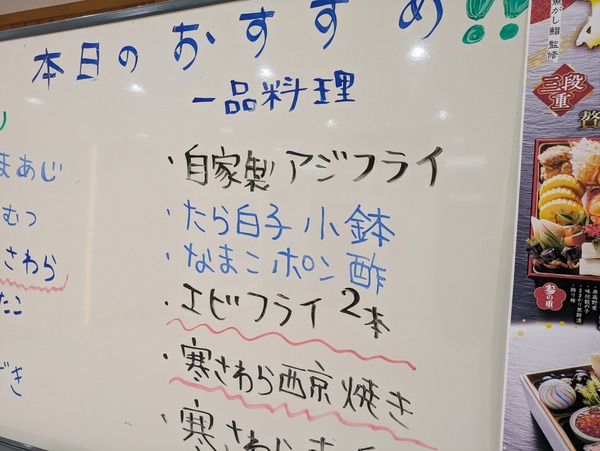 本日のおすすめ!!
一品料理
・自家製アジフライ
・たら白子小鉢
・なまこポン酢
・エビフライ2本
・寒さわら西京焼き
・寒さわら
まあじ
むつ
さわら
たこ
づき
焦がし鮨 監修
三段重
贅
参の重